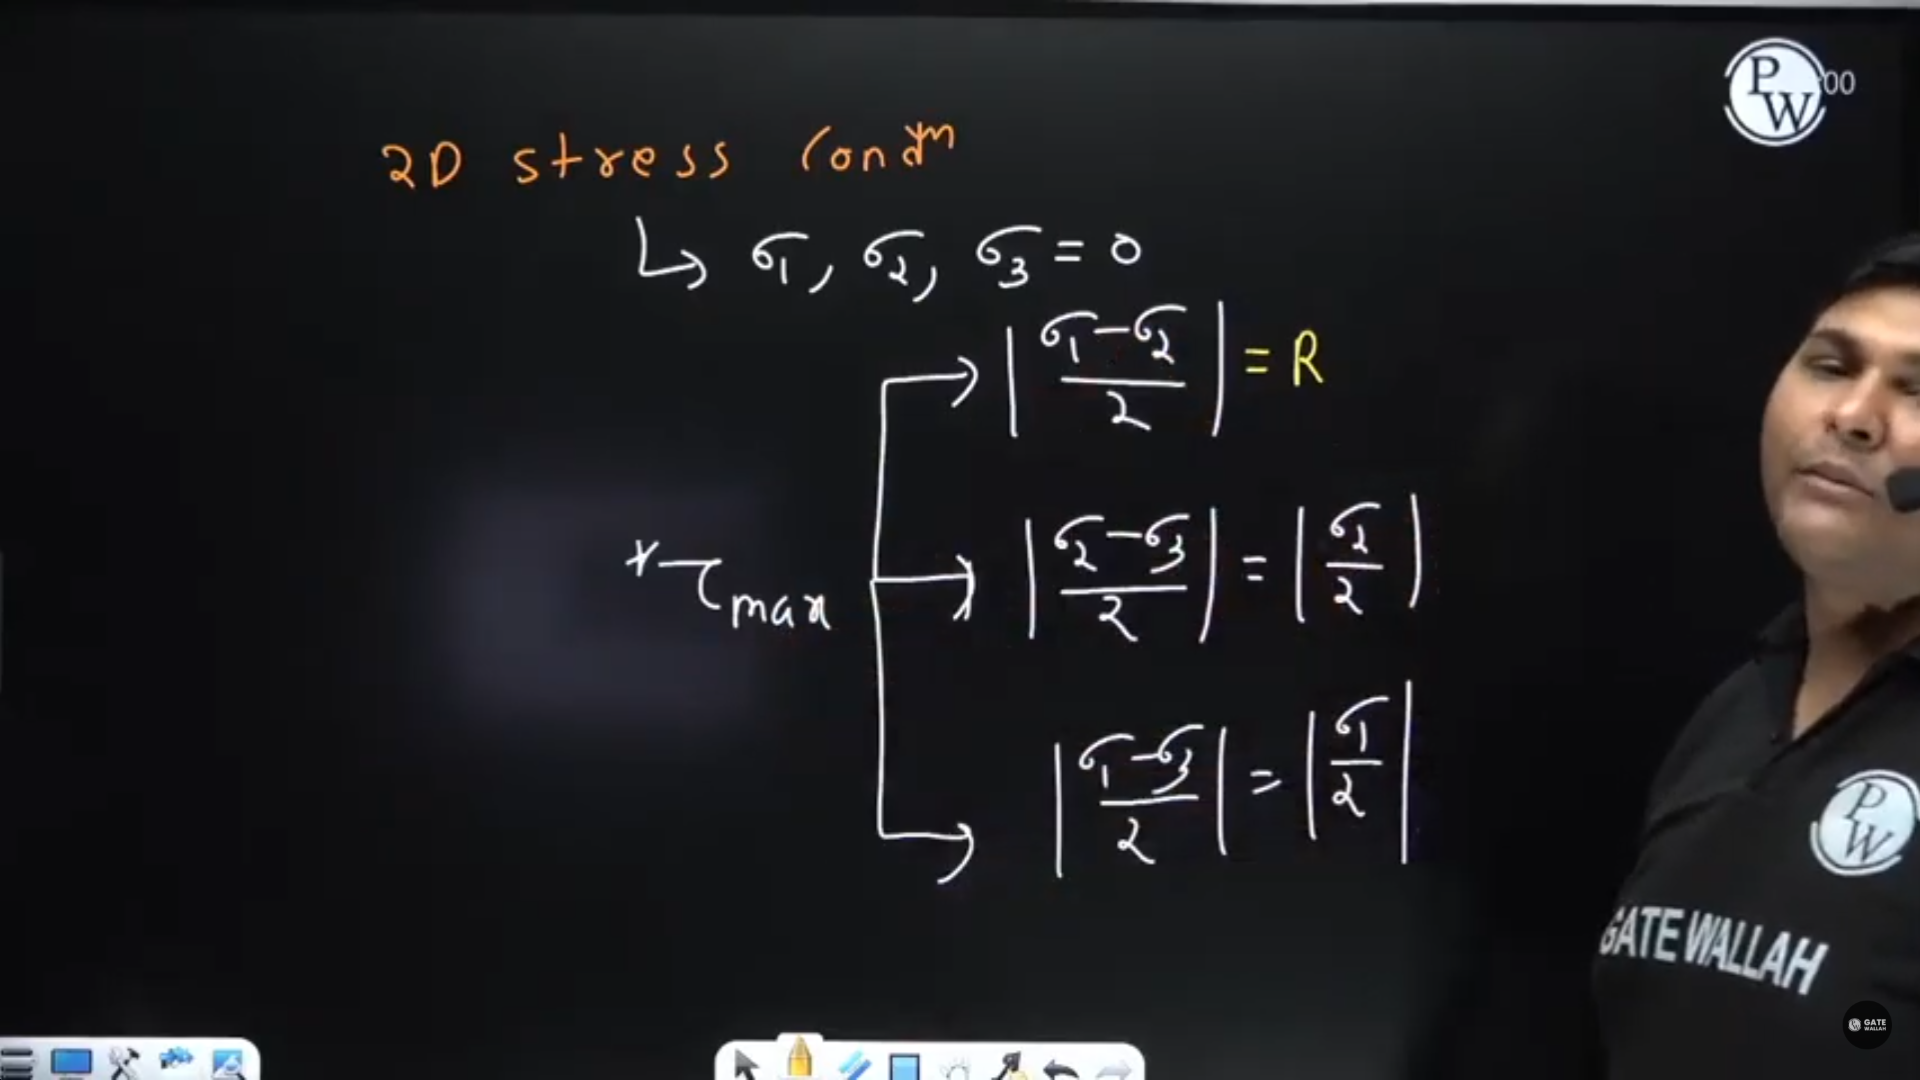 PW 00
2D stress Condn
↳ σ1, σ2, σ3 = 0
|σ1-σ2/2| = R
*τmax
|σ2-σ3/2| = |σ2/2|
|σ1-σ3/2| = |σ1/2|
PW
GATE WALLAH
GATE WALLAH